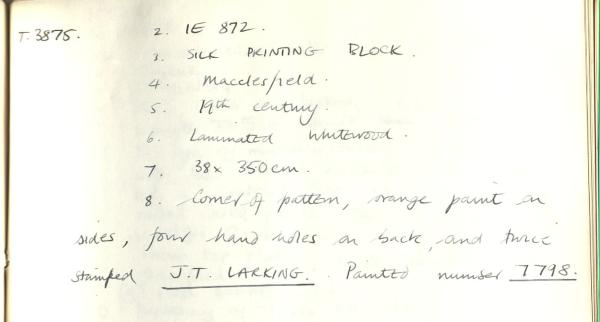 T.3875. 2. IE 872.
3. SILK PRINTING BLOCK.
4. Macclesfield.
5. 19th century.
6. Laminated whitewood.
7. 38x 350cm.
8. Corner of pattern, orange paint on
sides, four hand holes on back, and twice
stamped J.T. LARKING. Painted number 7798.